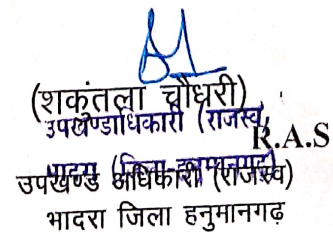 (शकुंतला चौधरी)
उपखण्डाधिकारी (राजस्व)
R.A.S
भादरा (जिला-हनुमानगढ़)
उपखण्ड अधिकारी (राजस्व)
भादरा जिला हनुमानगढ़